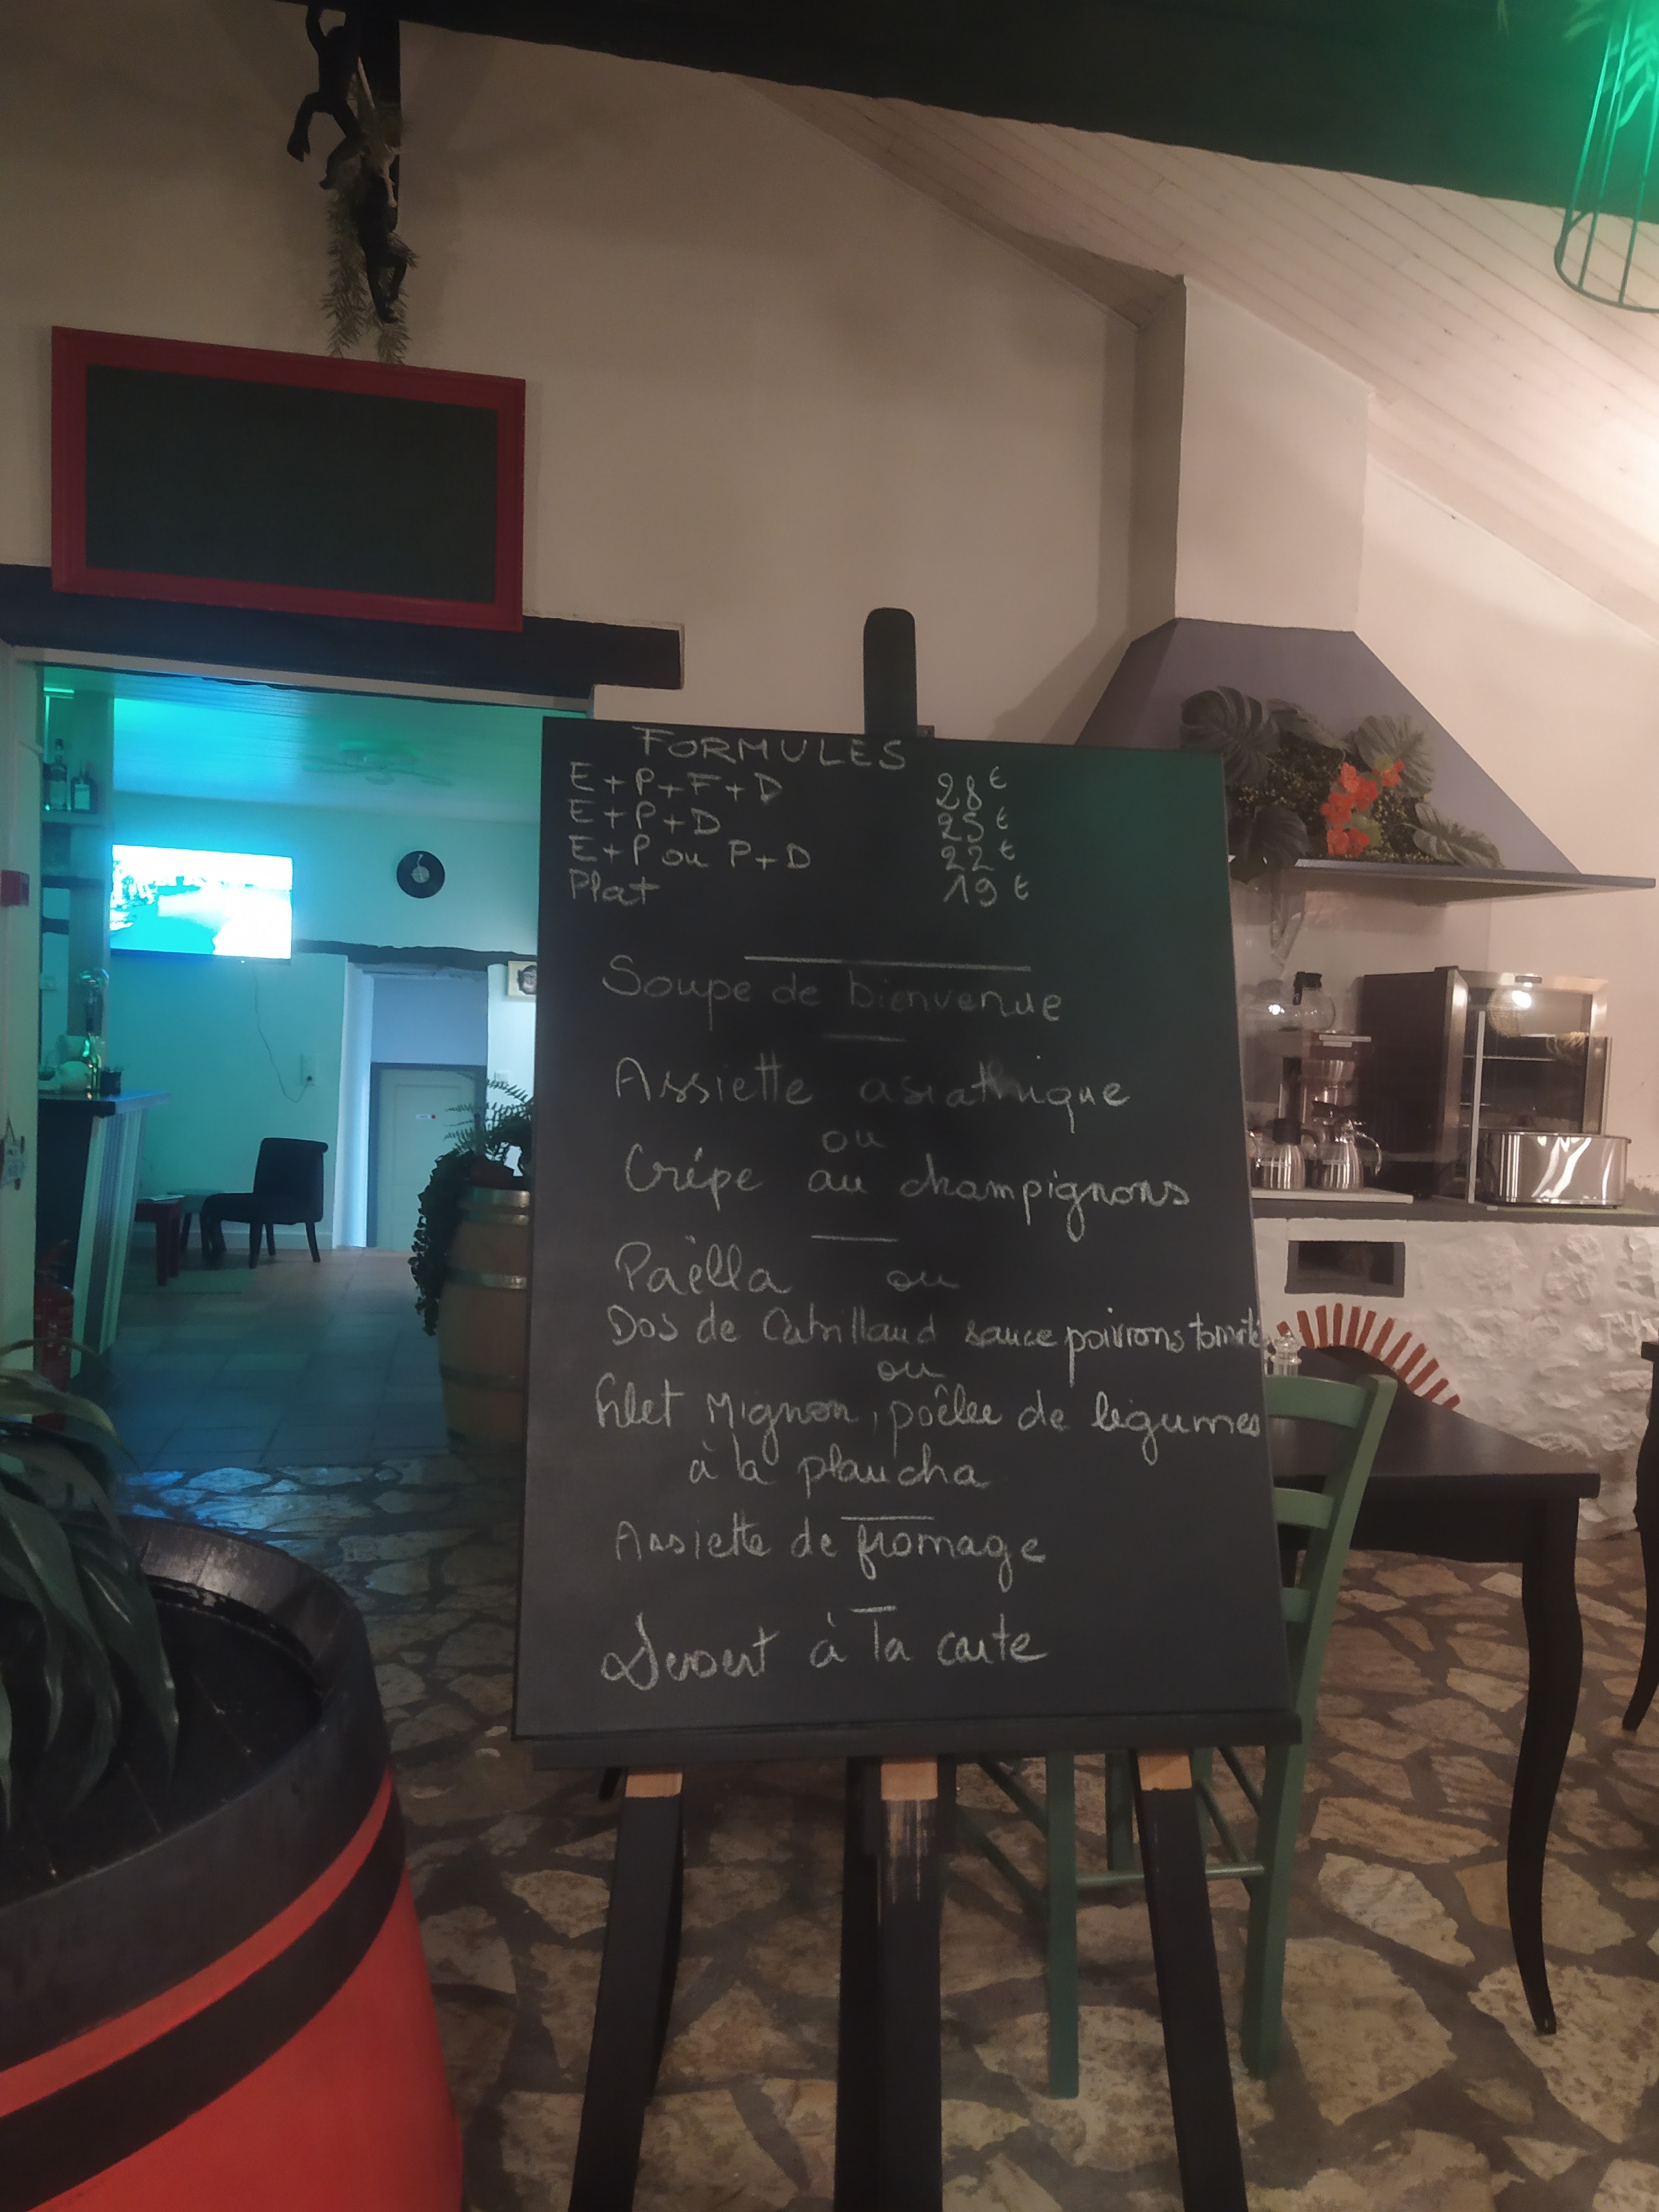 FORMULES
E+P+F+D 28€
E+P+D 25€
E+P ou P+D 22€
Plat 19€
Soupe de bienvenue
Assiette asiathique
ou
Crêpe au champignons
Paëlla ou
Dos de Cabillaud sauce poivrons tomate
ou
filet Mignon, poêlée de légumes
à la plancha
Assiette de fromage
Dessert à la carte